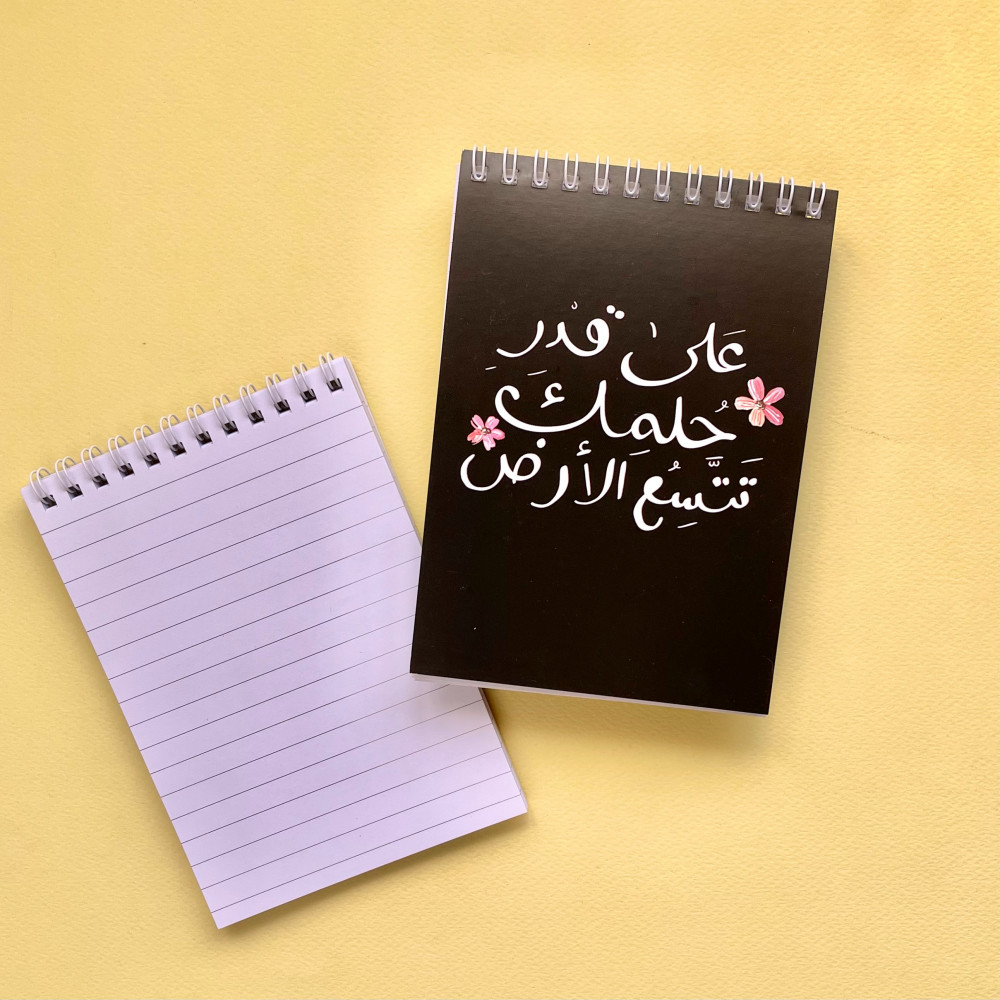 عَلىٰ قدْرِ
حُلمِك
تَتَّسِعُ الأرض